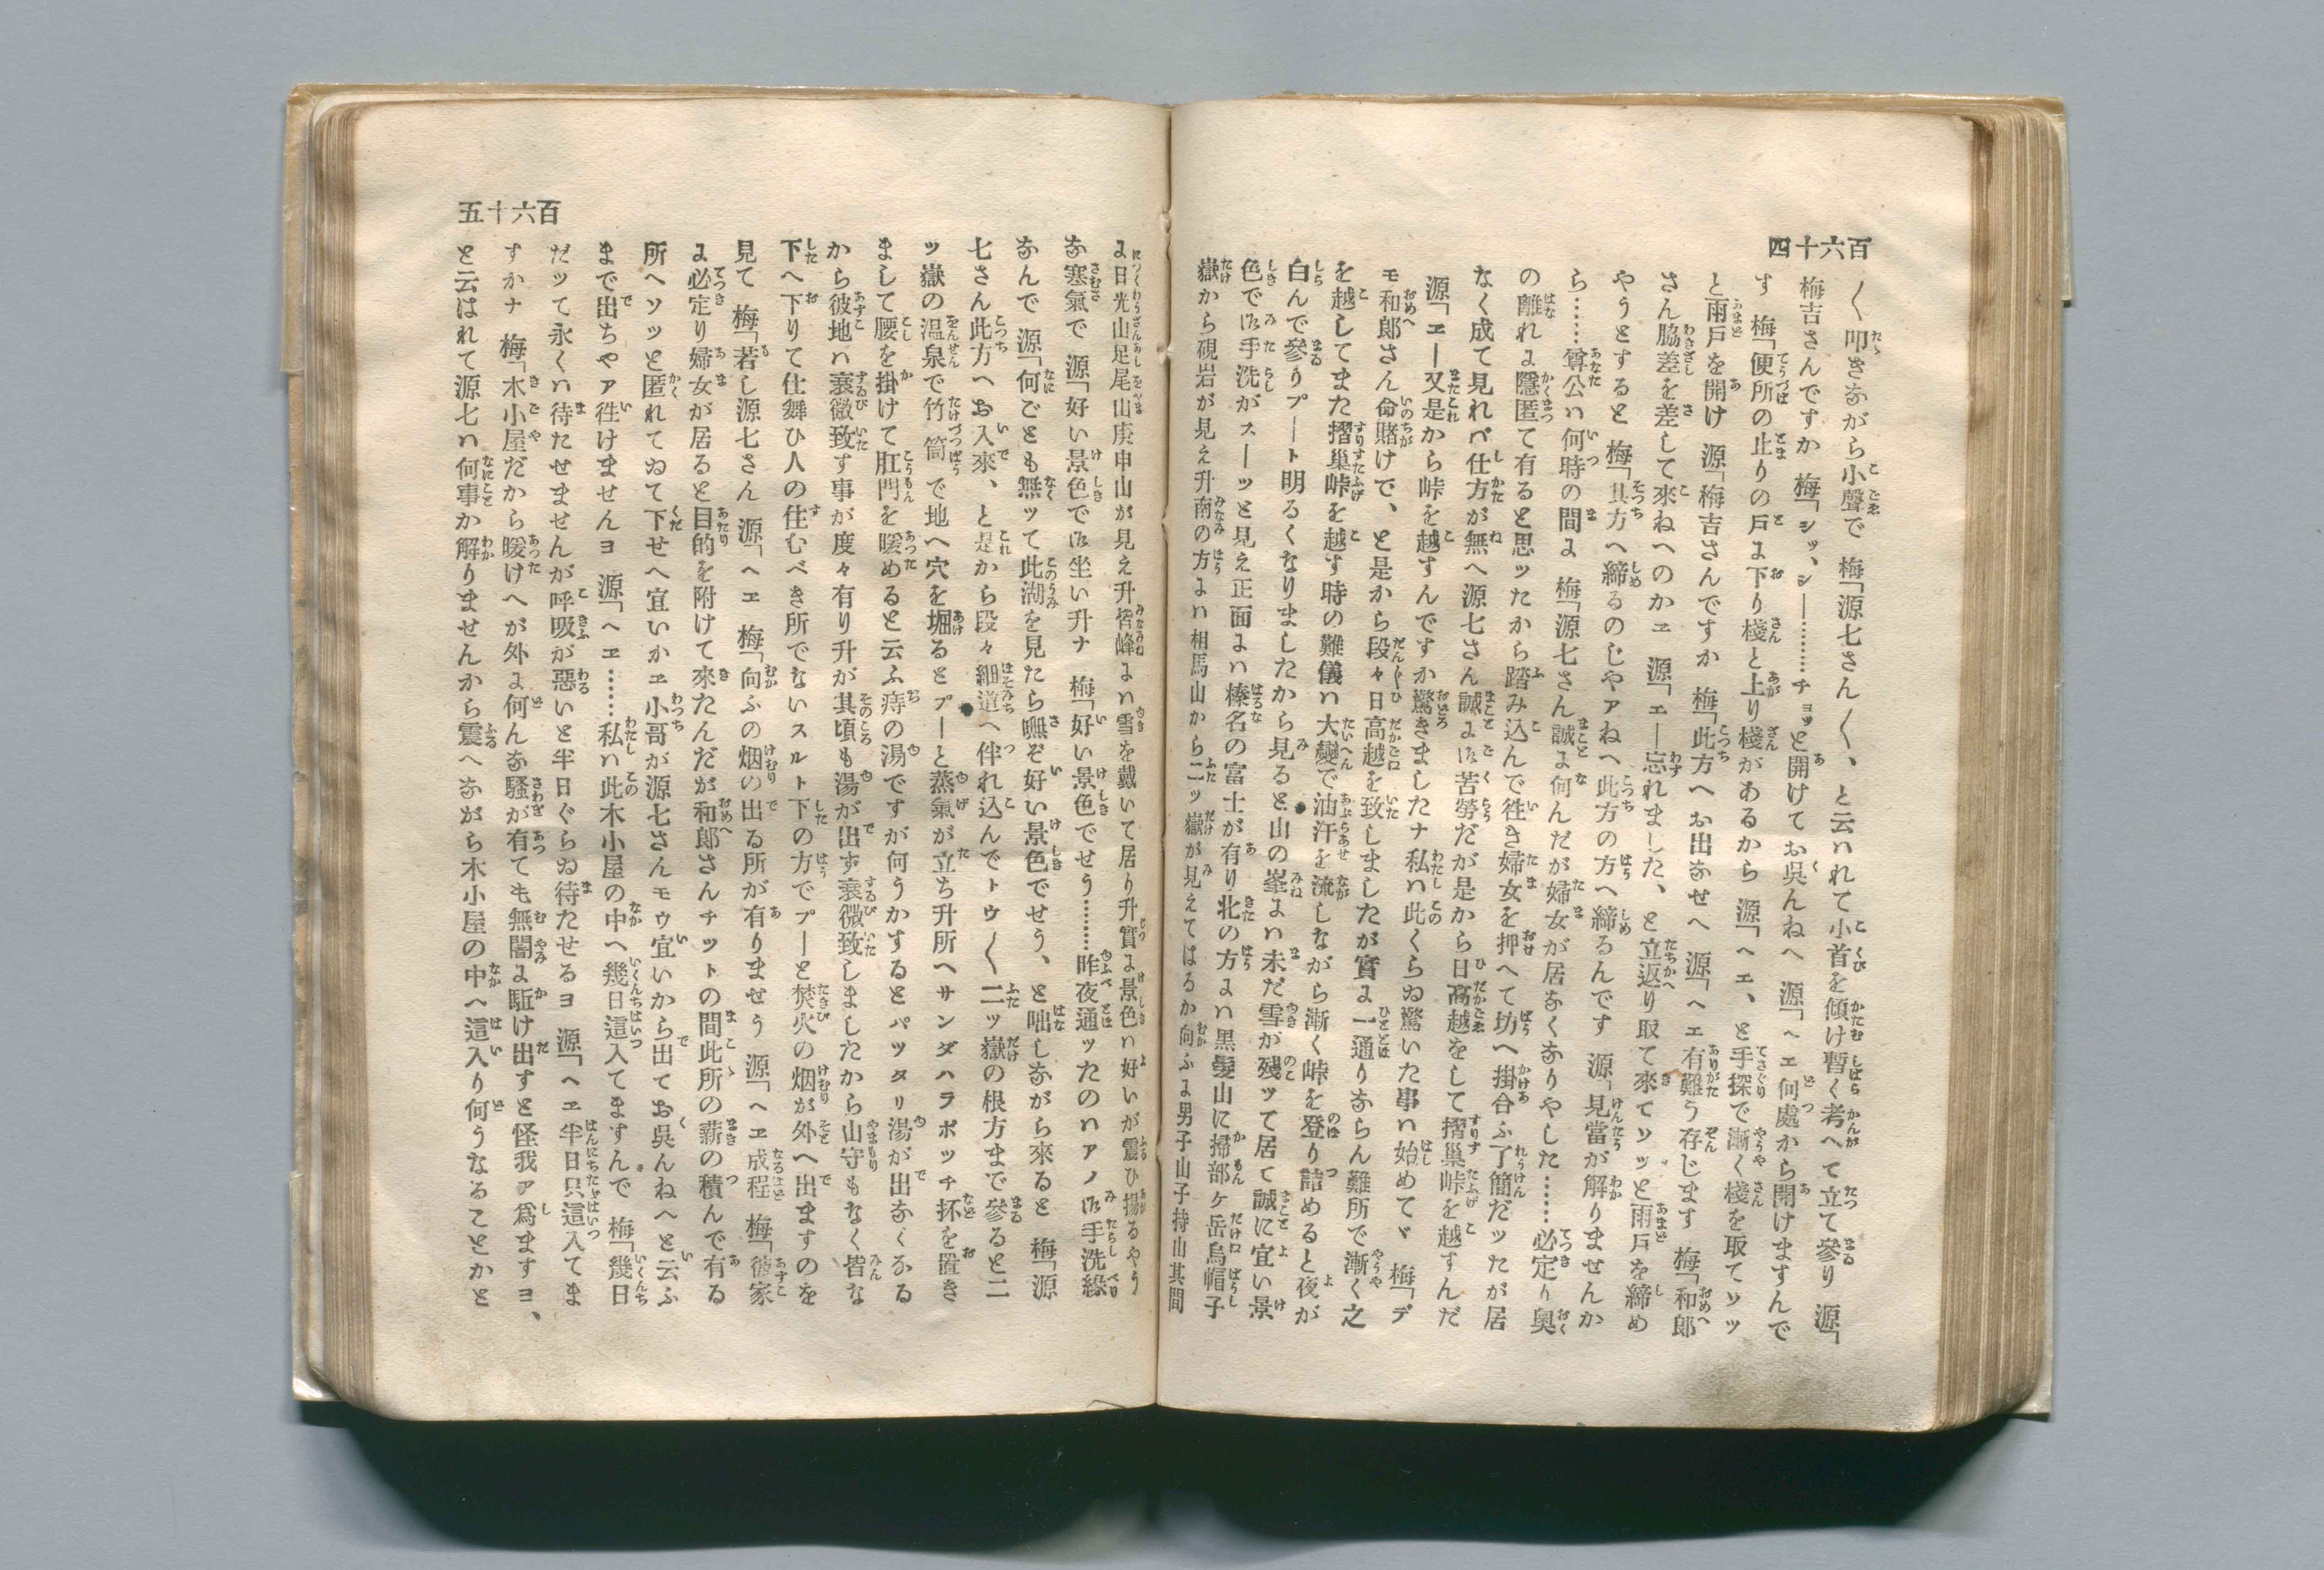 百六十四
〱叩きながら小聲で　梅「源七さん〱、と云はれて小首を傾け暫く考へて立て參り　源「
梅吉さんですか　梅「シッ、シー………チョッと開けてお呉んねへ　源「ヘエ何處から開けますんで
す　梅「便所の止りの戸に下り棧と上り棧があるから　源「ヘエ、と手探で漸く棧を取てソッ
と雨戸を開け　源「梅吉さんですか　梅「此方へお出なせへ　源「ヘエ有難う存じます　梅「和郎
さん脇差を差して來ねへのかエ　源「エー忘れました、と立返り取て來てソッと雨戸を締め
やうとすると　梅「其方へ締るのじやアねへ此方の方へ締るんです　源「見當が解りませんか
ら……尊公は何時の間に　梅「源七さん誠に何んだが婦女が居なくなりやした……必定り奥
の離れに隱匿て有ると思ッたから踏み込んで徃き婦女を押へて坊へ掛合ふ了簡だッたが居
なく成て見れバ仕方が無へ源七さん誠に御苦勞だが是から日高越をして摺巢峠を越すんだ
源「エー又是から峠を越すんですか驚きましたナ私は此くらゐ驚いた事は始めてヾ　梅「デ
モ和郎さん命賭けで、と是から段々日高越を致しましたが實に一通りならん難所で漸く之
を越してまた摺巢峠を越す時の難儀は大變で油汗を流しながら漸く峠を登り詰めると夜が
白んで參りプート明るくなりましたから見ると山の峯には未だ雪が殘ッて居て誠に宜い景
色で御手洗がスーッと見え正面には榛名の富士が有り北の方には黒髮山に掃部ヶ岳烏帽子
嶽から硯岩が見え升南の方には相馬山から二ッ嶽が見えてはるか向ふに男子山子持山其間
百六十五
に日光山足尾山庚申山が見え升皆峰には雪を戴いて居り升實に景色は好いが震ひ揚るやう
な寒氣で　源「好い景色で御坐い升ナ　梅「好い景色でせう………昨夜通ッたのはアノ御手洗緣
なんで　源「何ごとも無ッて此湖を見たら嘸ぞ好い景色でせう、と咄しながら來ると　梅「源
七さん此方へお入來、と是から段々細道へ伴れ込んでトウ〱二ッ嶽の根方まで參ると二
ッ嶽の温泉で竹筒で地へ穴を堀るとプーと蒸氣が立ち升所へサンダハラボッチ抔を置き
まして腰を掛けて肛門を暖めると云ふ痔の湯ですが何うかするとパッタリ湯が出なくなる
から彼地は衰微致す事が度々有り升が其頃も湯が出ず衰微致しましたから山守もなく皆な
下へ下りて仕舞ひ人の住むべき所でないスルト下の方でプーと焚火の烟が外へ出ますのを
見て　梅「若し源七さん　源「ヘエ　梅「向ふの烟の出る所が有りませう　源「ヘエ成程　梅「彼家
に必定り婦女が居ると目的を附けて來たんだが和郎さんチットの間此所の薪の積んで有る
所へソッと匿れてゐて下せへ宜いかエ小哥が源七さんモウ宜いから出てお呉んねへと云ふ
まで出ちやア徃けませんヨ　源「ヘエ……私は此木小屋の中へ幾日這入てますんで　梅「幾日
だッて永くは待たせませんが呼吸が惡いと半日ぐらゐ待たせるヨ　源「ヘエ半日只這入てま
すかナ　梅「木小屋だから暖けへが外に何んな騷が有ても無闇に駈け出すと怪我ア爲ますヨ、
と云はれて源七は何事か解りませんから震へながら木小屋の中へ這入り何うなることかと